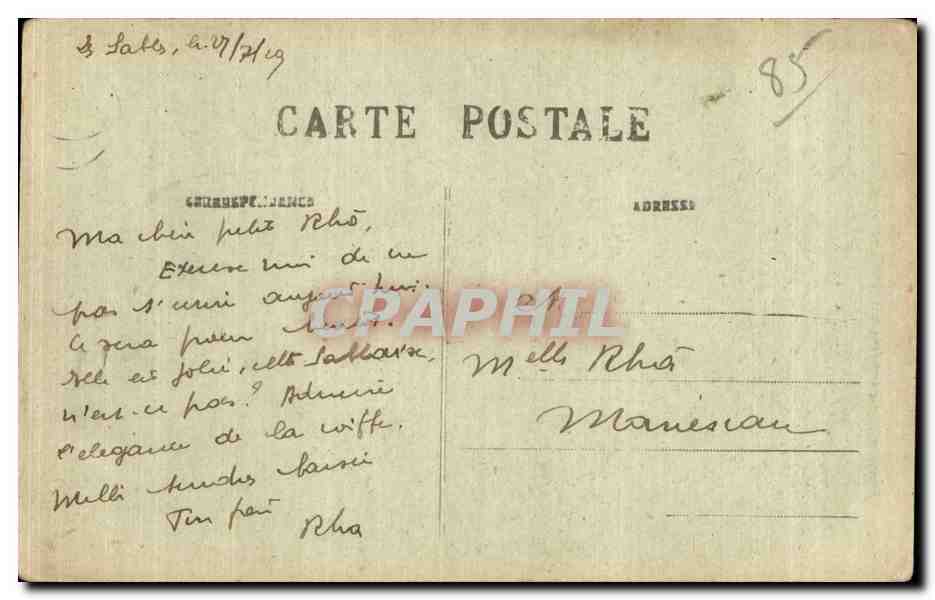 Les Sables, le 27/7/19
85
CARTE POSTALE
CORRESPONDANCE
ADRESSE
Ma bien petite Rhô,
Excuse moi de ne
pas t'écrire aujourd'hui.
Ce sera pour bientôt.
Elle est jolie, cette Sablaise,
n'est-ce pas? Admire
l'élégance de la coiffe.
Mille tendres baisers
Ton
Rha
CPAPHIL
Melle Rhô